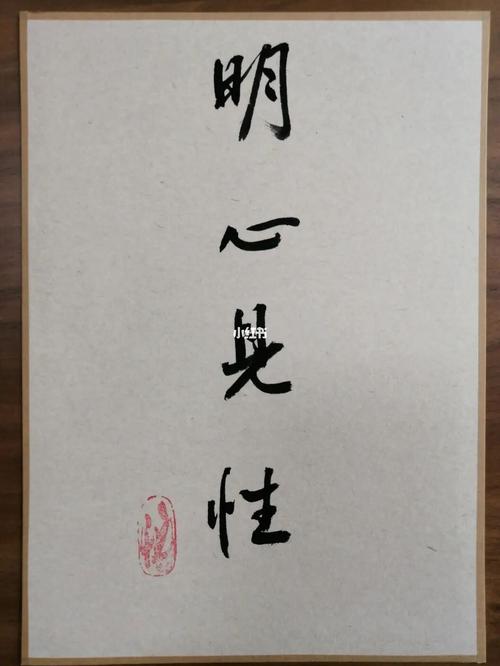 明心見性
小红书